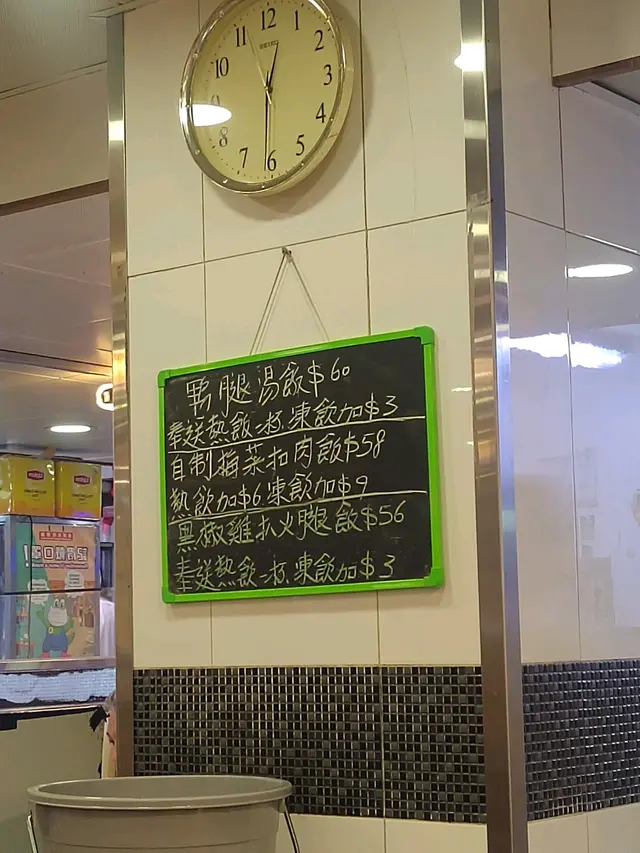 12
11
1
10
2
3
8
4
7
5
6
SEIKO
鴨腿湯飯$60
奉送熱飲一杯.凍飲加$3
自制梅菜扣肉飯$58
熱飲加$6凍飲加$9
黑椒雞扒火腿飯$56
奉送熱飲一杯.凍飲加$3